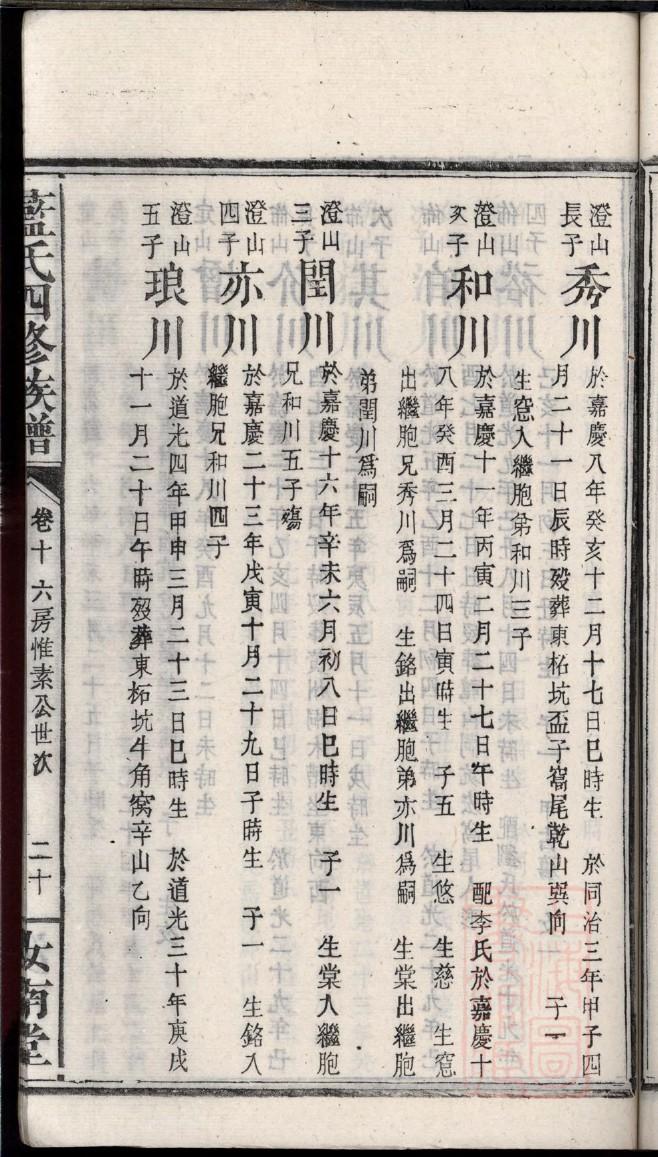 澄山長子 秀川 於嘉慶八年癸亥十二月十七日巳時生 於同治三年甲子四
月二十一日辰時歿葬東柘坑盃子窩尾乾山巽向 子一
生窓入繼胞弟和川三子
澄山次子 和川 於嘉慶十一年丙寅二月二十七日午時生 配李氏於嘉慶十
八年癸酉三月二十四日寅時生 子五 生悠 生慈 生窓
出繼胞兄秀川爲嗣 生銘出繼胞弟亦川爲嗣 生棠出繼胞
弟閏川爲嗣
澄山三子 閏川 於嘉慶十六年辛未六月初八日巳時生 子一 生棠入繼胞
兄和川五子殤
澄山四子 亦川 於嘉慶二十三年戊寅十月二十九日子時生 子一 生銘入
繼胞兄和川四子
澄山五子 琅川 於道光四年甲申三月二十三日巳時生 於道光三十年庚戌
十一月二十日午時歿葬東柘坑牛角窩辛山乙向
藍氏四修族譜 卷十六房惟素公世次 二十 汝南堂